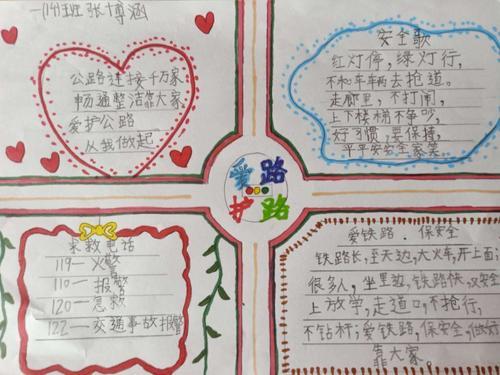 一(14)班 张博涵
公路连接千万家
畅通整洁靠大家
爱护公路
从我做起
安全歌
红灯停,绿灯行,
不和车辆去抢道。
走廊里,不打闹,
上下楼梯不争吵,
好习惯,要保持,
平平安安全家笑。
爱路
护路
求救电话
119—火警
110—报警
120—急救
122—交通事故报警
爱铁路.保安全
铁路长,至天边,大火车,开上面;
很多人,坐里边,铁路快,又安全
上放学,走道口,不抢行,
不钻杆;爱铁路,保安全,
靠大家。